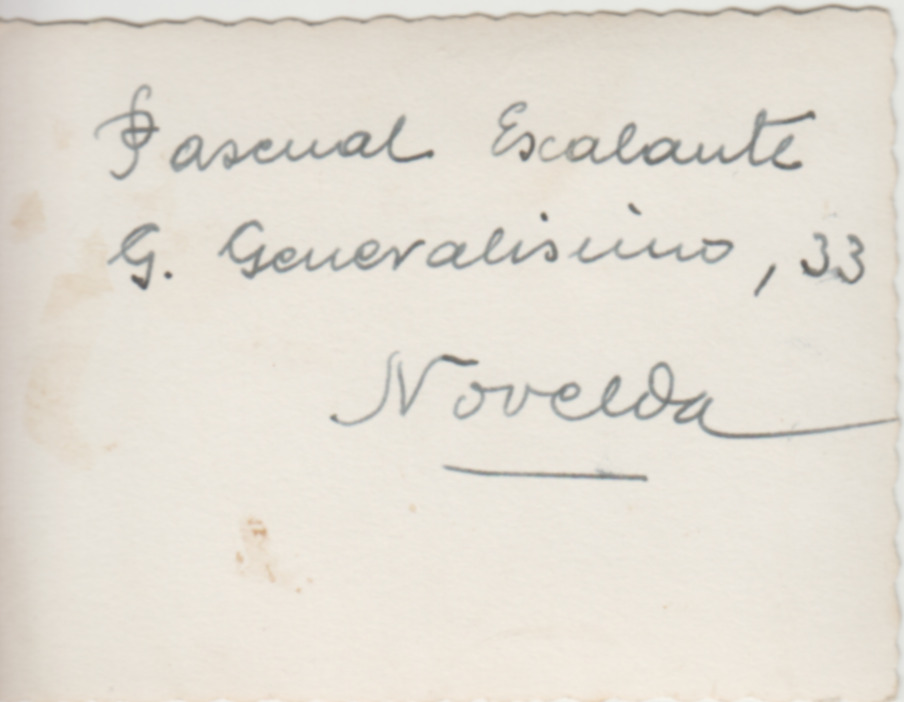 Pascual Escalante
G. Generalisimo, 33
Novelda